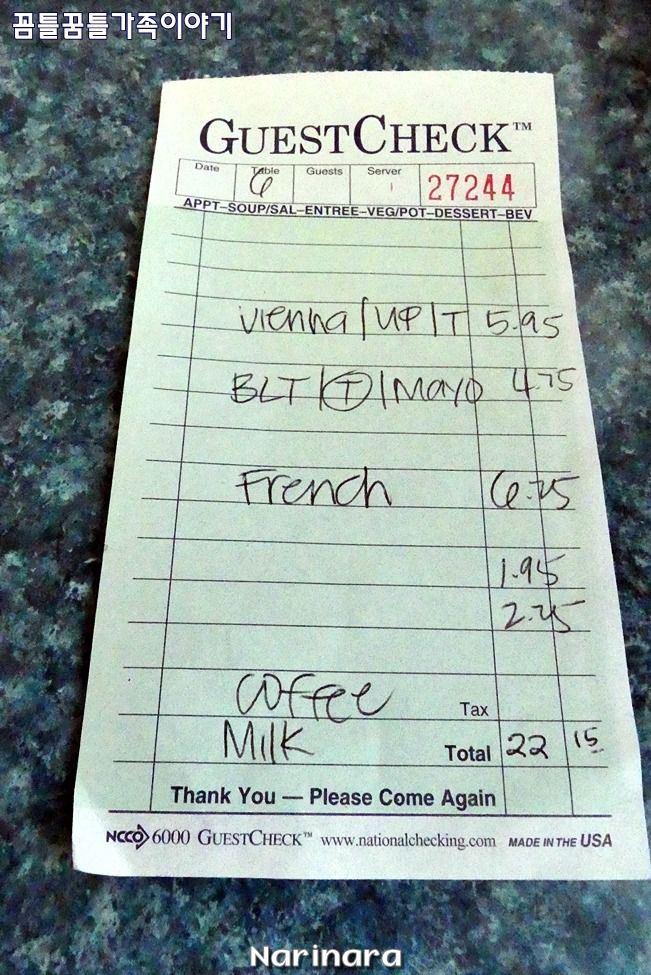 꿈틀꿈틀가족이야기
GUESTCHECK™
Date Table Guests Server
6 27244
APPT–SOUP/SAL–ENTREE–VEG/POT–DESSERT–BEV
Vienna/UP/T 5.95
BLT/T/Mayo 4.75
French 6.25
1.95
2.25
Coffee Tax
Milk Total 22 15
Thank You — Please Come Again
NCCO 6000 GUESTCHECK™ www.nationalchecking.com MADE IN THE USA
Narinara